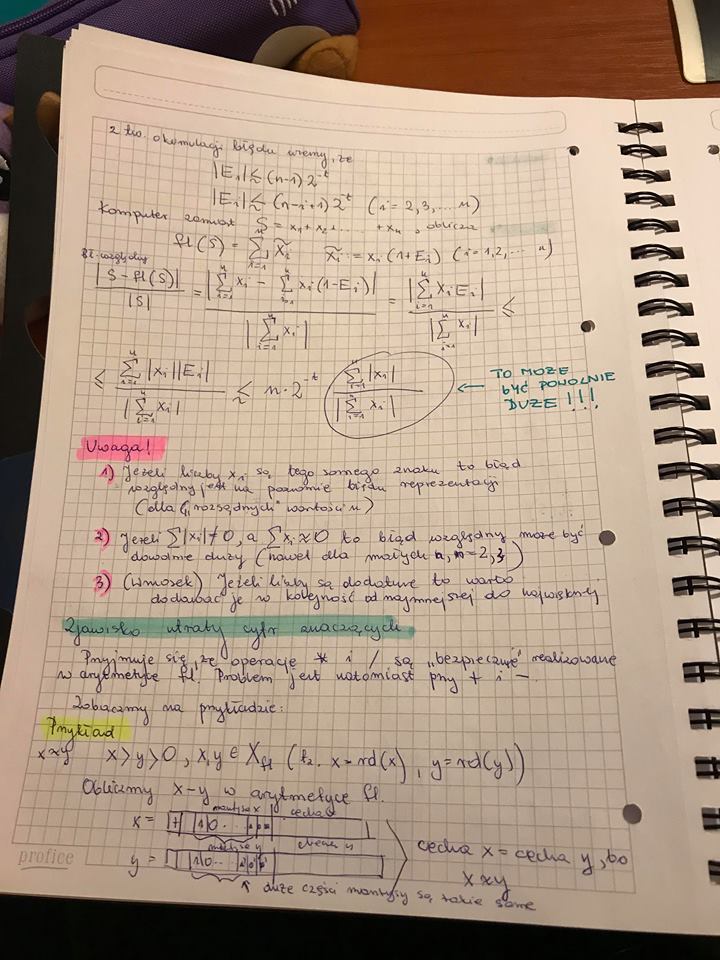 z tw. o kumulacji błędu wiemy, że
|E₁| ≲ (n-1) 2^{-t}
|Eᵢ| ≲ (n-i+1) 2^{-t} (i = 2,3,... n)
Komputer zamiast S = x₁ + x₂ + ... + xₙ, oblicza
fl(S) = ∑_{i=1}^{n} x̃ᵢ   x̃ᵢ := xᵢ (1+Eᵢ) (i=1,2,... n)
Bł. względny
|S - fl(S)| / |S| = |∑_{i=1}^{n} xᵢ - ∑_{i=1}^{n} xᵢ (1-Eᵢ)| / |∑_{i=1}^{n} xᵢ| = |∑_{i=1}^{n} xᵢ Eᵢ| / |∑_{i=1}^{n} xᵢ| ≤
≤ ∑_{i=1}^{n} |xᵢ||Eᵢ| / |∑_{i=1}^{n} xᵢ| ≲ n · 2^{-t} ∑_{i=1}^{n} |xᵢ| / |∑_{i=1}^{n} xᵢ| ← TO MOŻE
BYĆ DOWOLNIE
DUŻE !!!
Uwaga!
1) Jeżeli liczby xᵢ są tego samego znaku to błąd
względny jest na poziomie błędu reprezentacji
(dla „rozsądnych" wartości n)
2) Jeżeli ∑|xᵢ| ≠ 0, a ∑xᵢ ≈ 0 to błąd względny może być
dowolnie duży (nawet dla małych n, n=2,3)
3) (Wniosek) Jeżeli liczby są dodatnie to warto
dodawać je w kolejność od najmniejszej do największej
Zjawisko utraty cyfr znaczących
Przyjmuje się, że operacje * i / są „bezpiecznie" realizowane
w arytmetyce fl. Problem jest natomiast przy + i -.
Zobaczmy na przykładzie:
Przykład
x≈y x > y > 0, x,y ∈ X_{fl} (tz. x = rd(x), y = rd(y))
Obliczmy x-y w arytmetyce fl.
mantysa x cecha x
x = + 1 0 ...
mantysa y cecha y
y = 1 0 ...
cecha x = cecha y, bo
x≈y
duże części mantysy są takie same
profice